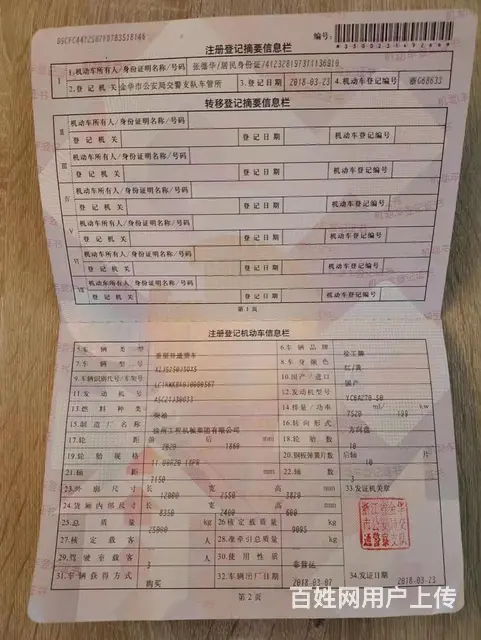 注册登记摘要信息栏
编号:
I
1.机动车所有人/身份证明名称/号码
2.登记机关
金华市公安局交警支队车管所
3.登记日期
2018-03-23
4.机动车登记编号
转移登记摘要信息栏
II
机动车所有人/身份证明名称/号码
登记机关
登记日期
机动车登记编号
III
机动车所有人/身份证明名称/号码
登记机关
登记日期
机动车登记编号
IV
机动车所有人/身份证明名称/号码
登记机关
登记日期
机动车登记编号
V
机动车所有人/身份证明名称/号码
登记机关
登记日期
机动车登记编号
VI
机动车所有人/身份证明名称/号码
登记机关
登记日期
机动车登记编号
VII
机动车所有人/身份证明名称/号码
登记机关
登记日期
机动车登记编号
第1页
注册登记机动车信息栏
5.车辆类型
重型非载货车
6.车辆品牌
徐工牌
7.车辆型号
8.车身颜色
红/黄
9.车辆识别代号/车架号
10.国产/进口
国产
11.发动机号
12.发动机型号
13.燃料种类
柴油
14.排量/功率
ml
kw
15.制造厂名称
徐州工程机械集团有限公司
16.转向形式
方向盘
17.轮距
前
后
1860
mm
18.轮胎数
10
19.轮胎规格
20.钢板弹簧片数
后轴
片
21.轴距
mm
22.轴数
3
23.外廓尺寸
长
12000
宽
2550
高
3820
mm
33.发证机关章
24.货厢内部尺寸
长
8350
宽
2400
高
600
mm
25.总质量
25000
kg
26.核定载质量
9005
kg
27.核定载客
人
28.准牵引总质量
kg
29.驾驶室载客
3
人
30.使用性质
非营运
31.车辆获得方式
购买
32.车辆出厂日期
2018-03-07
34.发证日期
2018-03-23
第2页
百姓网用户上传